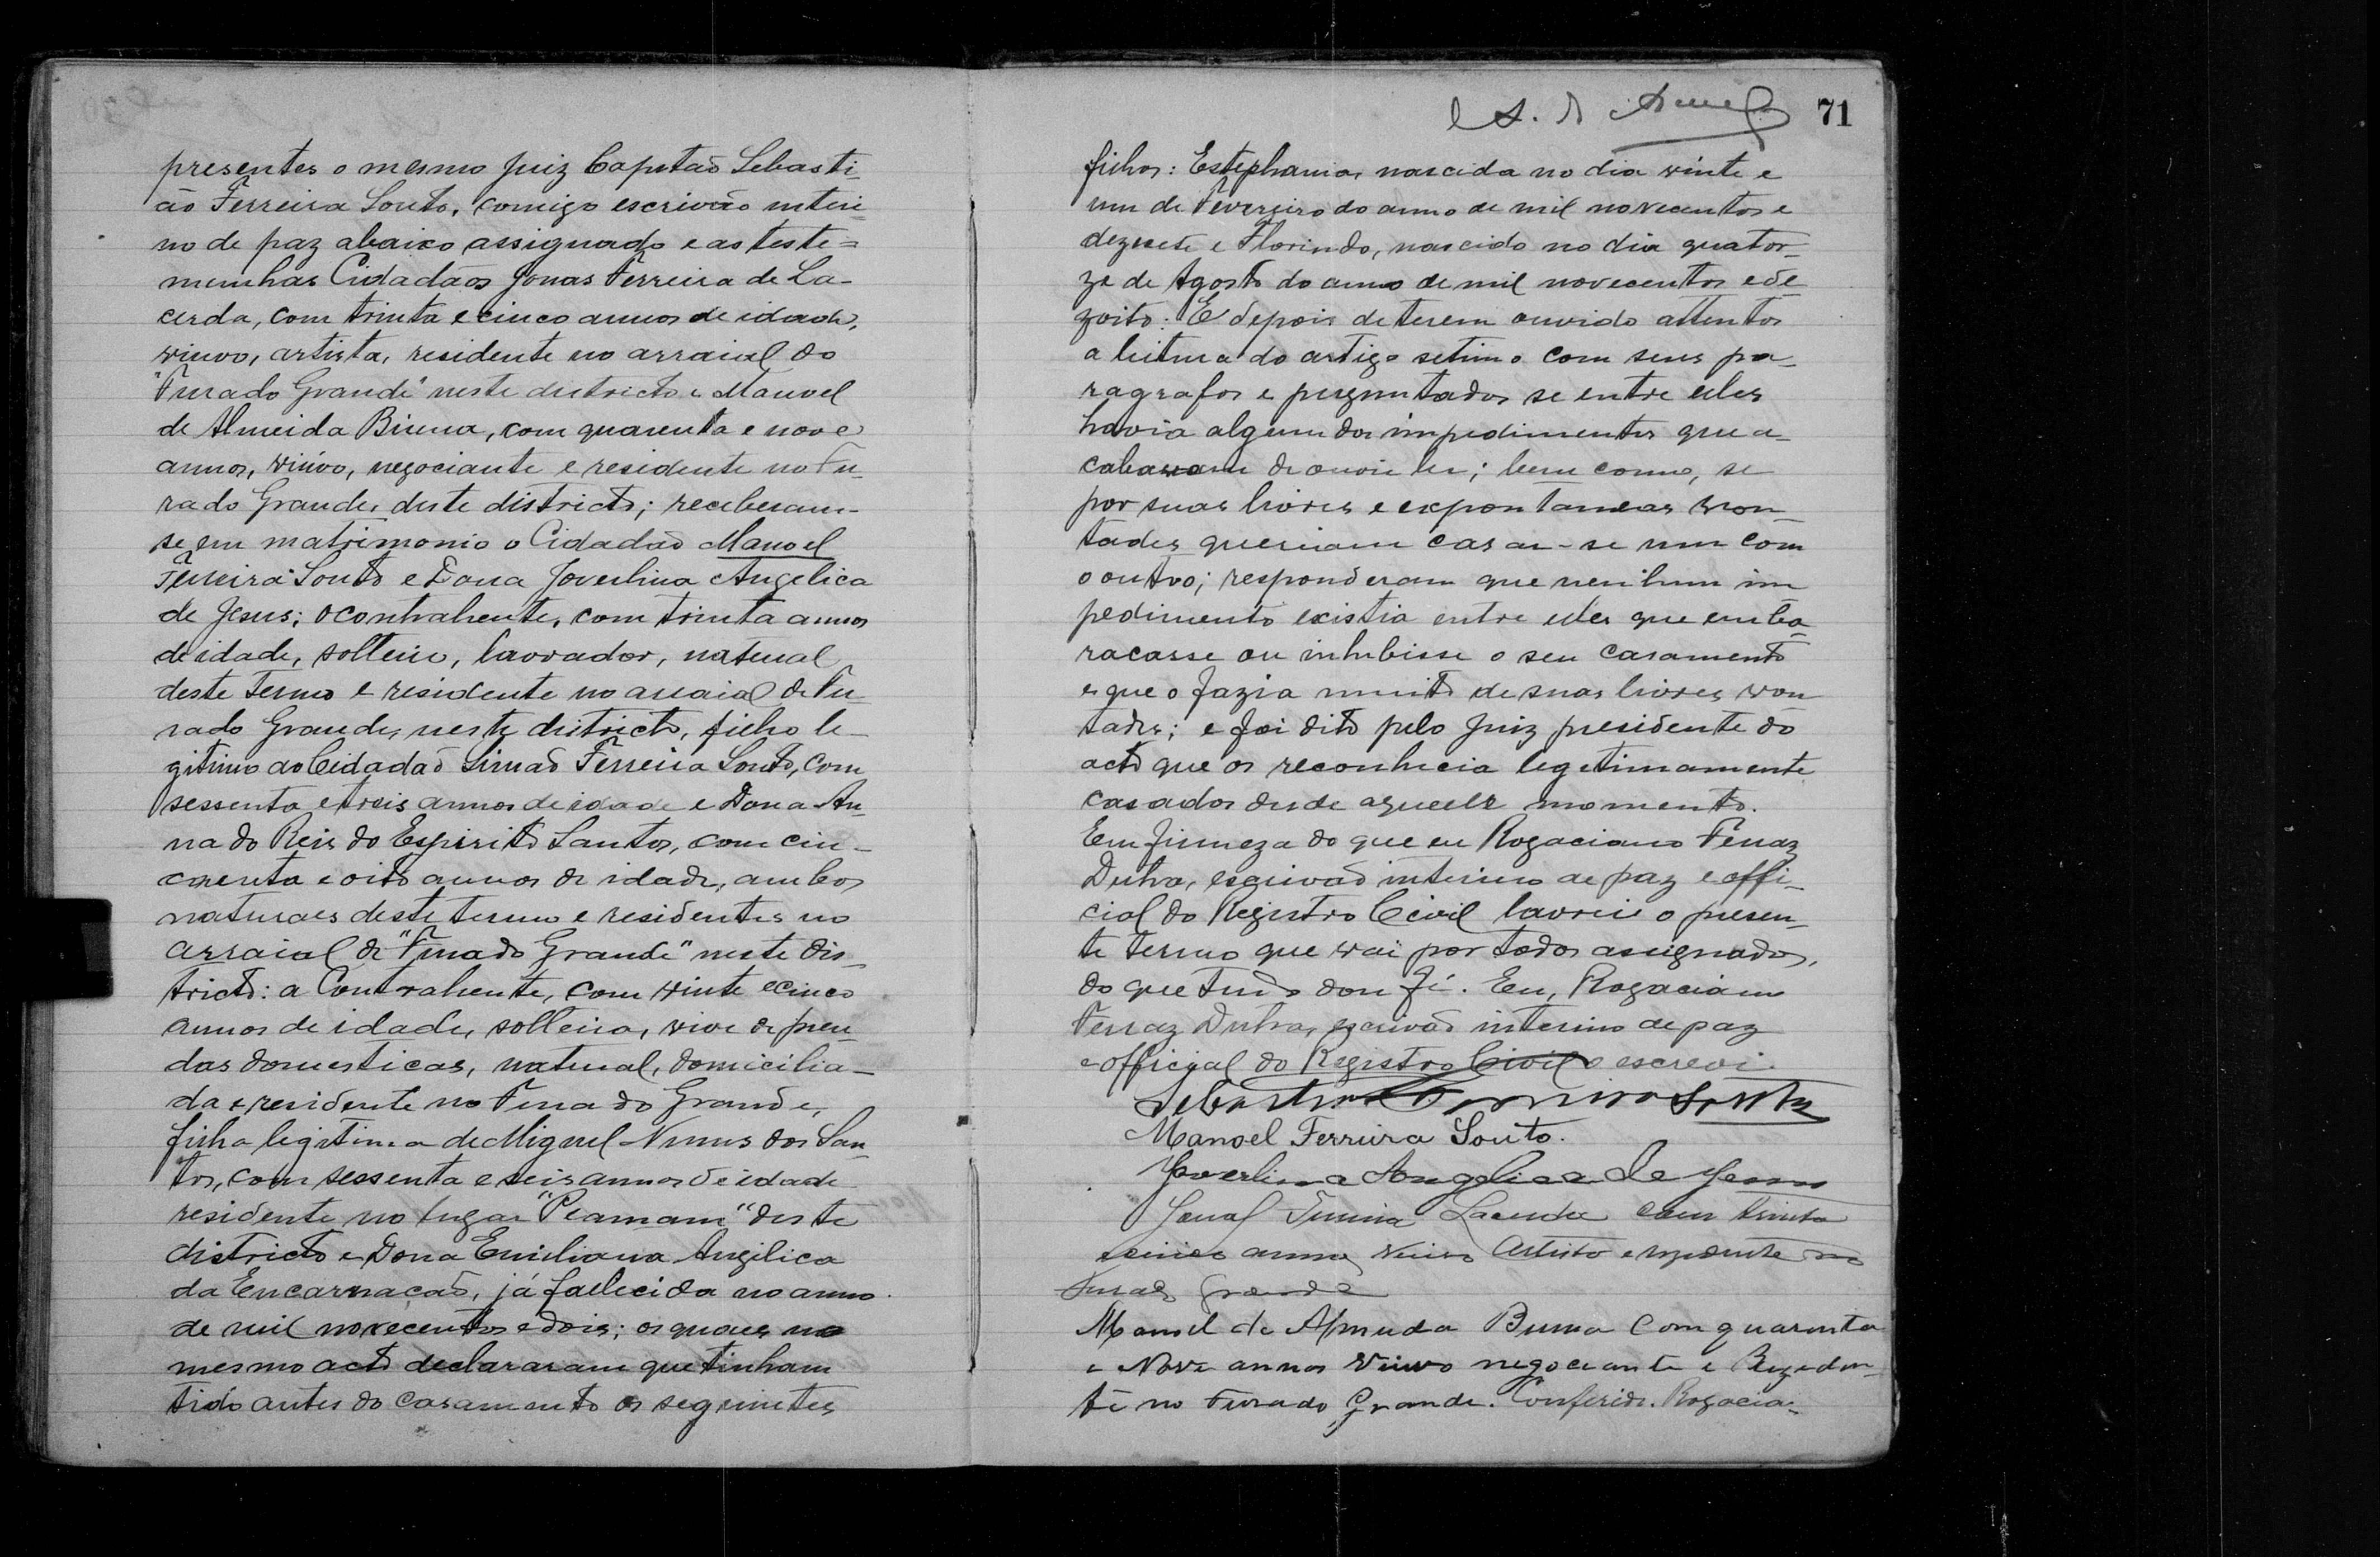 presentes o mesmo Juiz Capitaõ Sebasti-
ão Ferreira Souto, comigo escrivão interi-
no de paz abaixo assignado e as teste=
munhas Cidadãos Jonas Ferreira de La-
cerda, com trinta e cinco annos de idade,
viuvo, artista, residente no arraial do
"Furado Grande" neste districto e Manoel
de Almeida Buena, com quarenta e nove
annos, viúvo, negociante e residente no Fu-
rado Grande, deste districto; receberam-
se em matrimonio o Cidadaõ Manoel
Ferreira Souto e Dona Joverlina Angelica
de Jesus; o contrahente, com trinta annos
de idade, solteiro, lavrador, natural
deste termo e residente no arraial de Fu-
rado Grande, neste districto, filho le-
gitimo do Cidadaõ Simaõ Ferreira Souto, com
sessenta e treis annos de idade e Dona An-
na do Reis do Espirito Santos, com cin-
coenta e oito annos de idade, ambos
naturaes deste termo e residentes no
arraial de "Furado Grande" neste dis-
tricto: a Contrahente, com vinte e cinco
annos de idade, solteira, vive de pren-
das domesticas, natural, domicilia-
da e residente no Furado Grande,
filha legitima de Miguel Nunes dos San-
tos, com sessenta e seis annos de idade
residente no lugar "Piamam" deste
districto e Dona Emiliana Angelica
da Encarnacaõ, já fallecida no anno
de mil novecentos e dois; os quaes no
mesmo acto declararam que tinham
tido antes do casamento os seguintes
71
filhos: Estephania, nascida no dia vinte e
um de Fevereiro do anno de mil novecentos e
dezesete e Florindo, nascido no dia quator-
ze de Agosto do anno de mil novecentos e de
zoito. E depois de terem ouvido attentos
a leitura do artigo setimo com seus pa-
ragrafos e perguntados se entre elles
havia algum dos impedimentos que a-
cabavam de ouvir ler; bem como, se
por suas livres e expontaneas von-
tades queriam casar-se um com
o outro; responderam que nenhum im
pedimento existia entre elles que emba-
racasse ou inhibisse o seu casamento
e que o fazia muito de suas livres von
tades; e foi dito pelo Juiz presidente do
acto que os reconhecia legetimamente
casados desde aquelle momento.
Em firmeza do que eu Rogaciano Ferraz
Dutra, escrivaõ interino de paz e offi-
cial do Registro Civil lavrei o presen-
te termo que vai por todos assignados,
do que tudo dou fé. Eu, Rogaciano
Ferraz Dutra, escrivaõ interino de paz
e official do Registro Civil o escrevi.
Sebastiaõ Ferreira Souto
Manoel Ferreira Souto.
Joverlina Angelica de Jesus
Jonas Ferreira Lacerda com trinta
e cinco annos viuvo Artista e rezidente no
Furado Grande
Manoel de Almeida Buena com quarenta
e Nove annos viuvo negociante e Rezeden-
te no Furado Grande. Conferido. Rogacia-